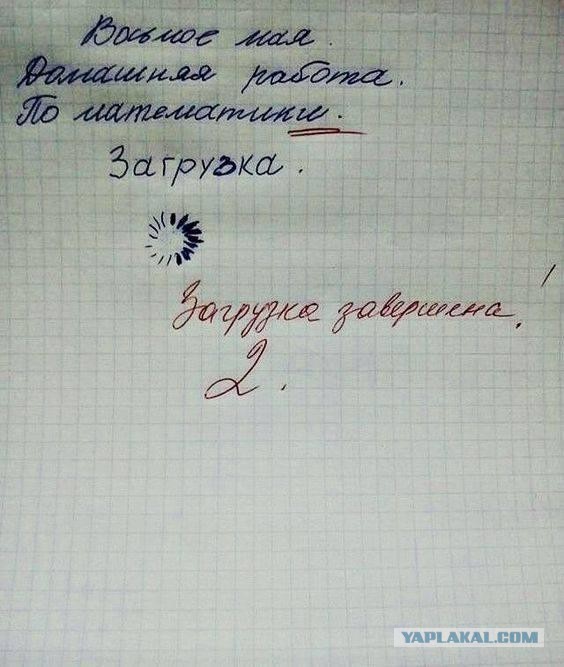 Восьмое мая.
Домашняя работа.
По математики.
Загрузка.
Загрузка завершена!
2.
YAPLAKAL.COM